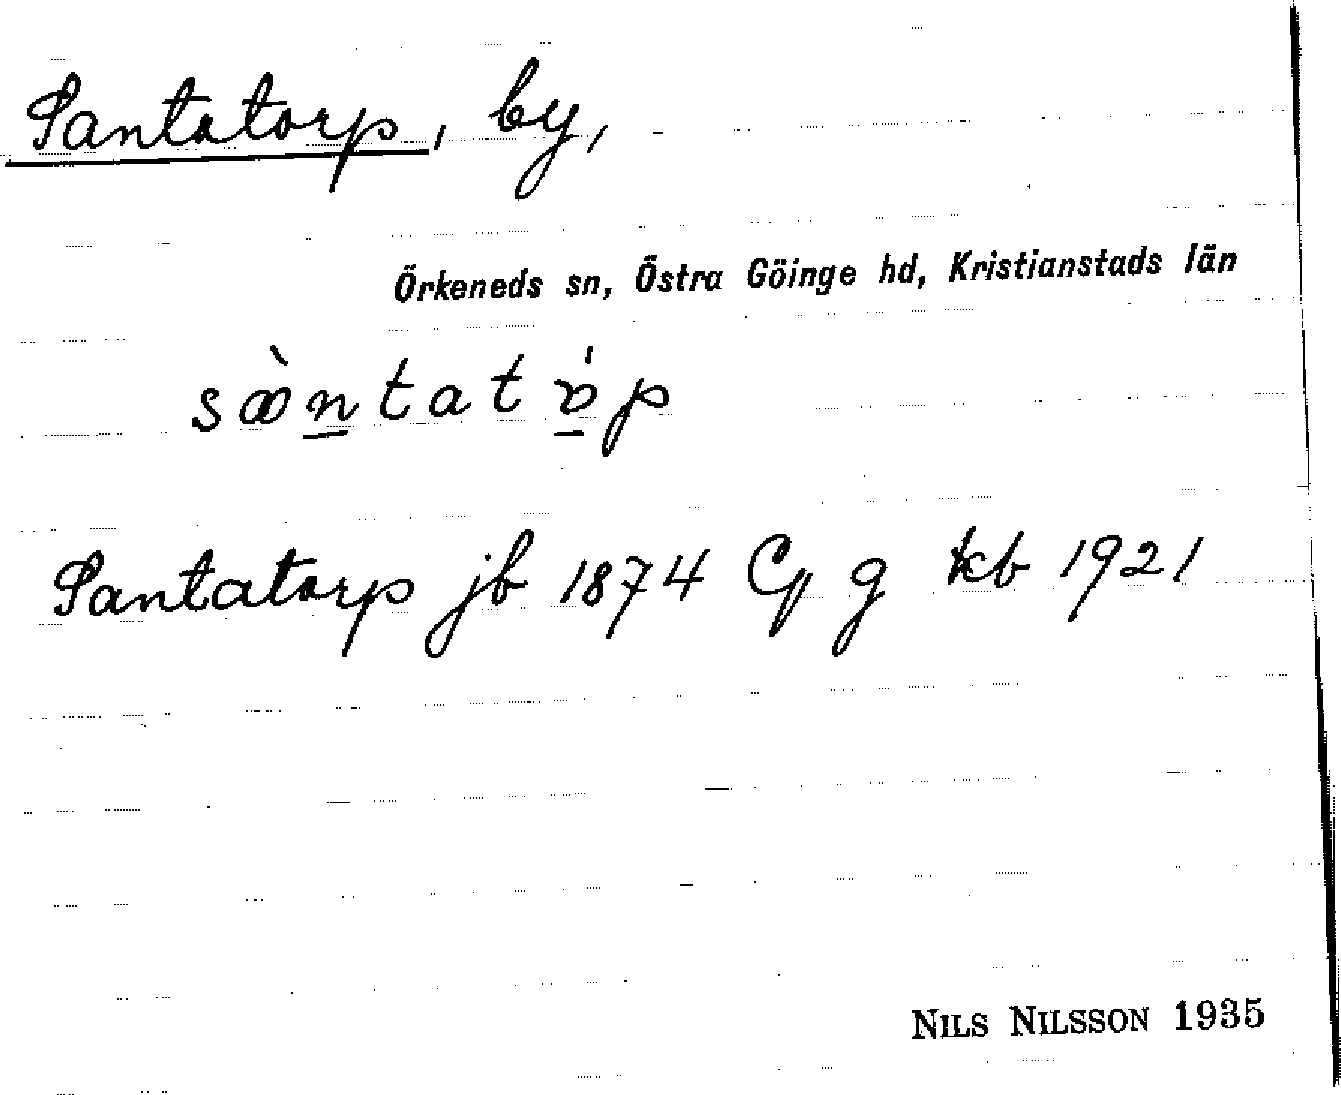 Santatorp, by,
Örkeneds sn, Östra Göinge hd, Kristianstads län
Santatorp jb 1874 Cp g kb 1921
NILS NILSSON 1935